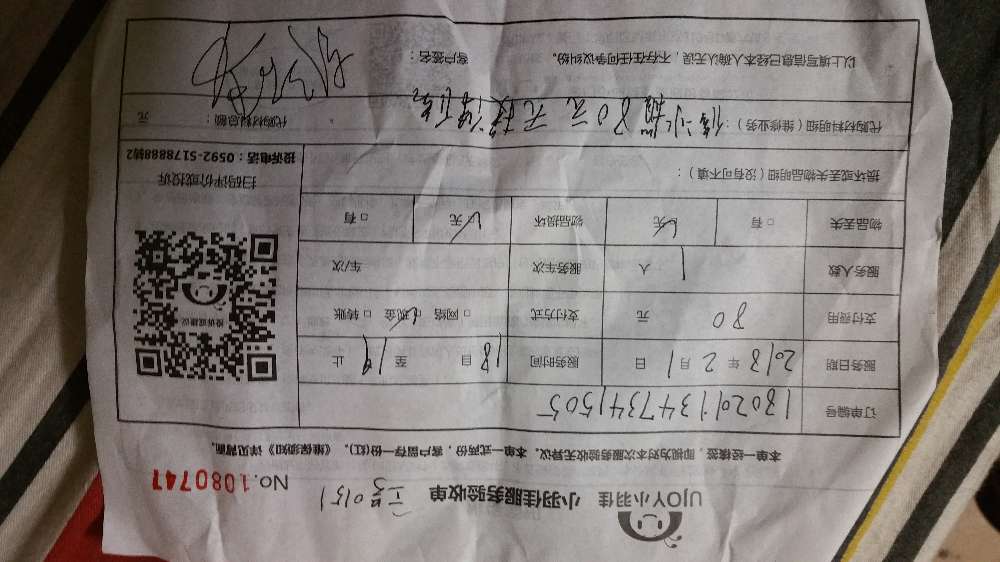 UJOY小羽佳 小羽佳服务验收单
No.1080747
本单一经核签，即视为对本次服务验收无异议。本单一式两份，客户留存一份（红）。《维保须知》详见背面。
订单编号 180201134734 1505
服务日期 2018 年 2 月 1 日 服务时间 18 自 至 19 止
支付费用 80 元 支付方式 □ 网络 ☑ 现金 □ 转账
服务人数 1 人 服务车次 车/次
物品丢失 □ 有 ☑ 无 物品损坏 ☑ 无 □ 有
损坏或丢失物品明细（没有可不填）：
投诉或建议
扫码评价或投诉
投诉电话：0592-5178888转2
代购材料明细（维修业务）： 80元 代购材料总额： 元
以上填写信息已经本人确认无误，不存在任何争议纠纷。 客户签名：